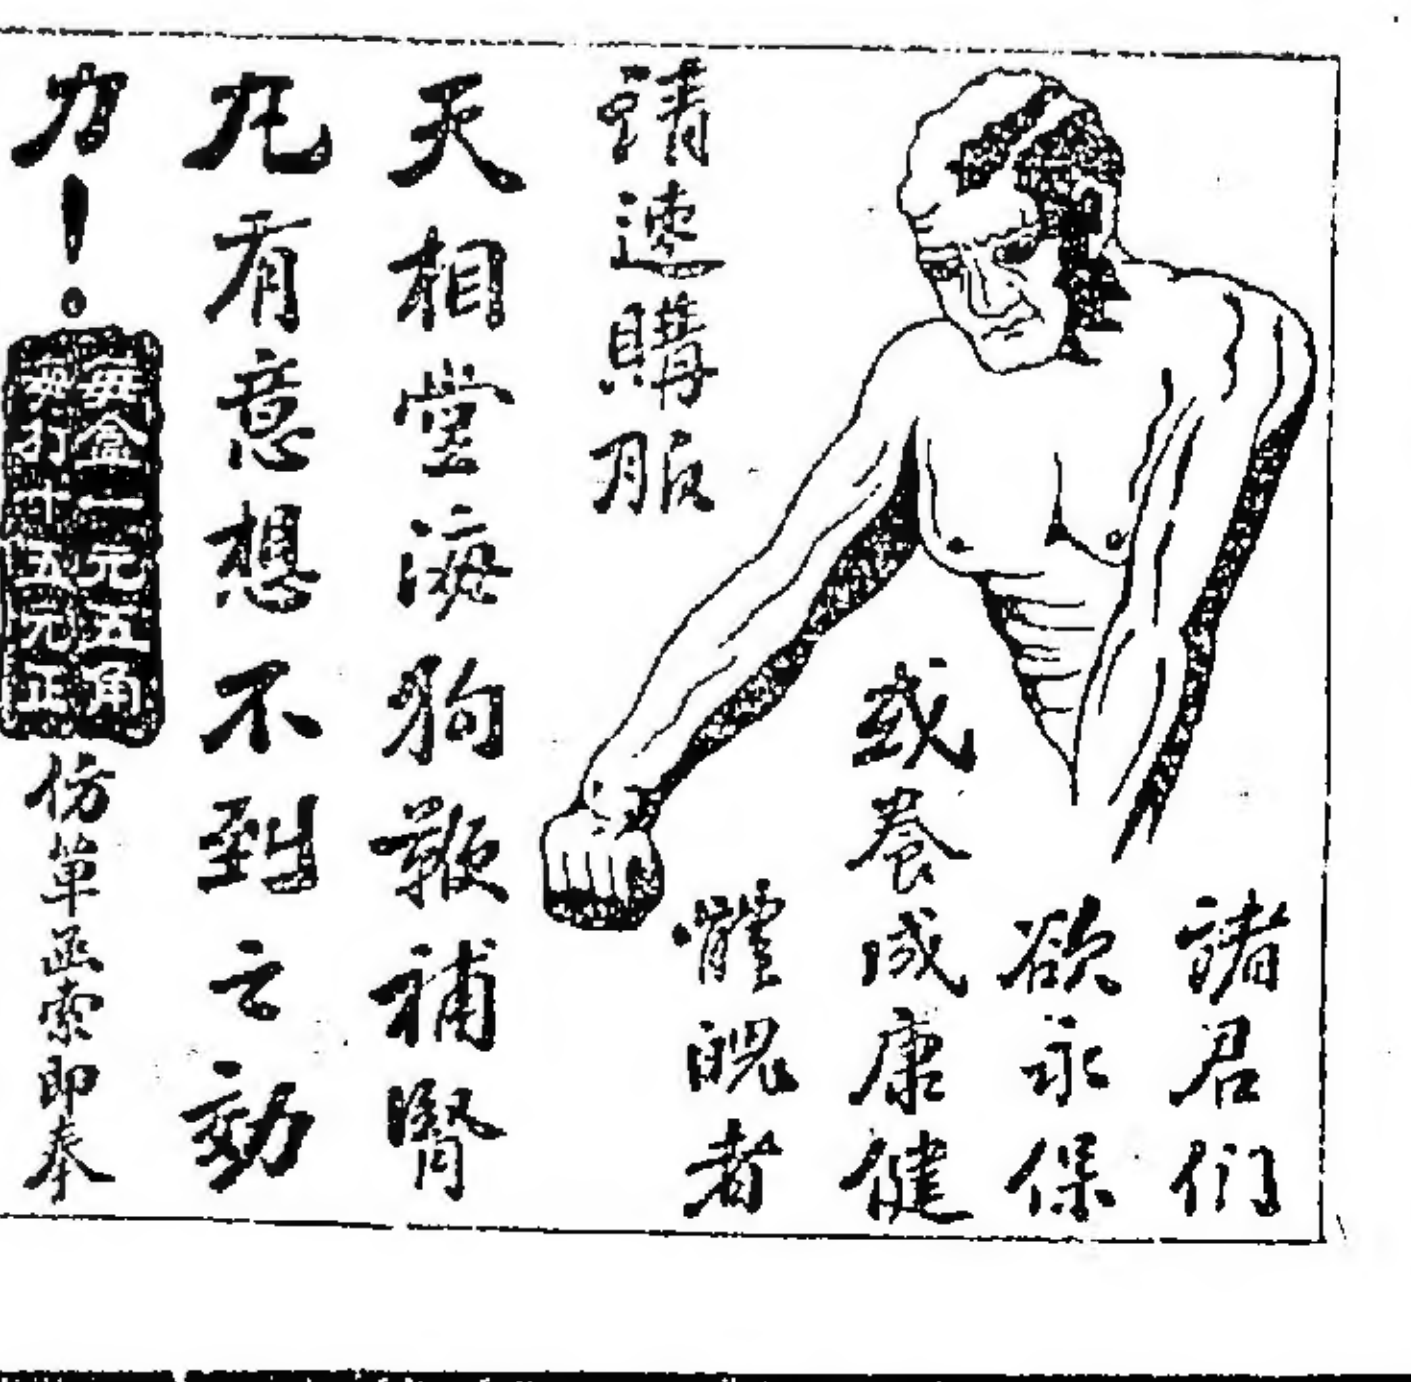 諸君們
欲永保
或養成康健
體魄者
請速購服
天相堂海狗鞭補腎
丸有意想不到之効
力！。
每盒一元五角
每打十五元正
仿單函索即奉